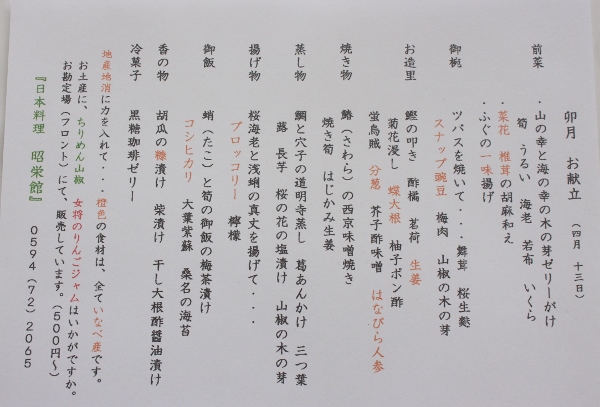 卯月　お献立　（四月　十三日）
前菜　・山の幸と海の幸の木の芽ゼリーがけ
筍　うるい　海老　若布　いくら
・菜花　椎茸の胡麻和え
・ふぐの一味揚げ
御椀　ツバスを焼いて・・・　舞茸　桜生麩
スナップ豌豆　梅肉　山椒の木の芽
お造里　鰹の叩き　酢橘　茗荷　生姜
菊花浸し　蝶大根　柚子ポン酢
蛍烏賊　分葱　芥子酢味噌　はなびら人参
焼き物　鰆（さわら）の西京味噌焼き
焼き筍　はじかみ生姜
蒸し物　鯛と穴子の道明寺蒸し　葛あんかけ　三つ葉
蕗　長芋　桜の花の塩漬け　山椒の木の芽
揚げ物　桜海老と浅蜊の真丈を揚げて・・・
ブロッコリー　檸檬
御飯　蛸（たこ）と筍の御飯の梅茶漬け
コシヒカリ　大葉紫蘇　桑名の海苔
香の物　胡瓜の糠漬け　柴漬け　干し大根酢醤油漬け
冷菓子　黒糖珈琲ゼリー
地産地消に力を入れて・・・橙色の食材は、全ていなべ産です。
お土産に、ちりめん山椒　女将のりんごジャムはいかがですか。
お勘定場（フロント）にて、販売しています。（５００円～）
『日本料理　昭栄館』　０５９４（７２）２０６５